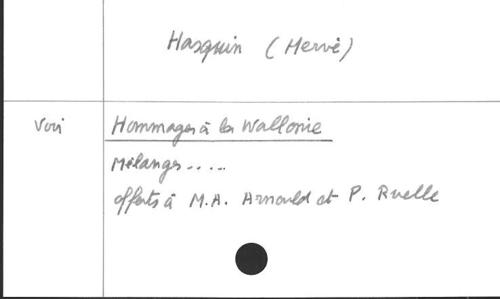 Hasquin (Hervé)
Voir Hommages à la Wallonie
Mélanges.....
offerts à M.A. Arnould et P. Ruelle